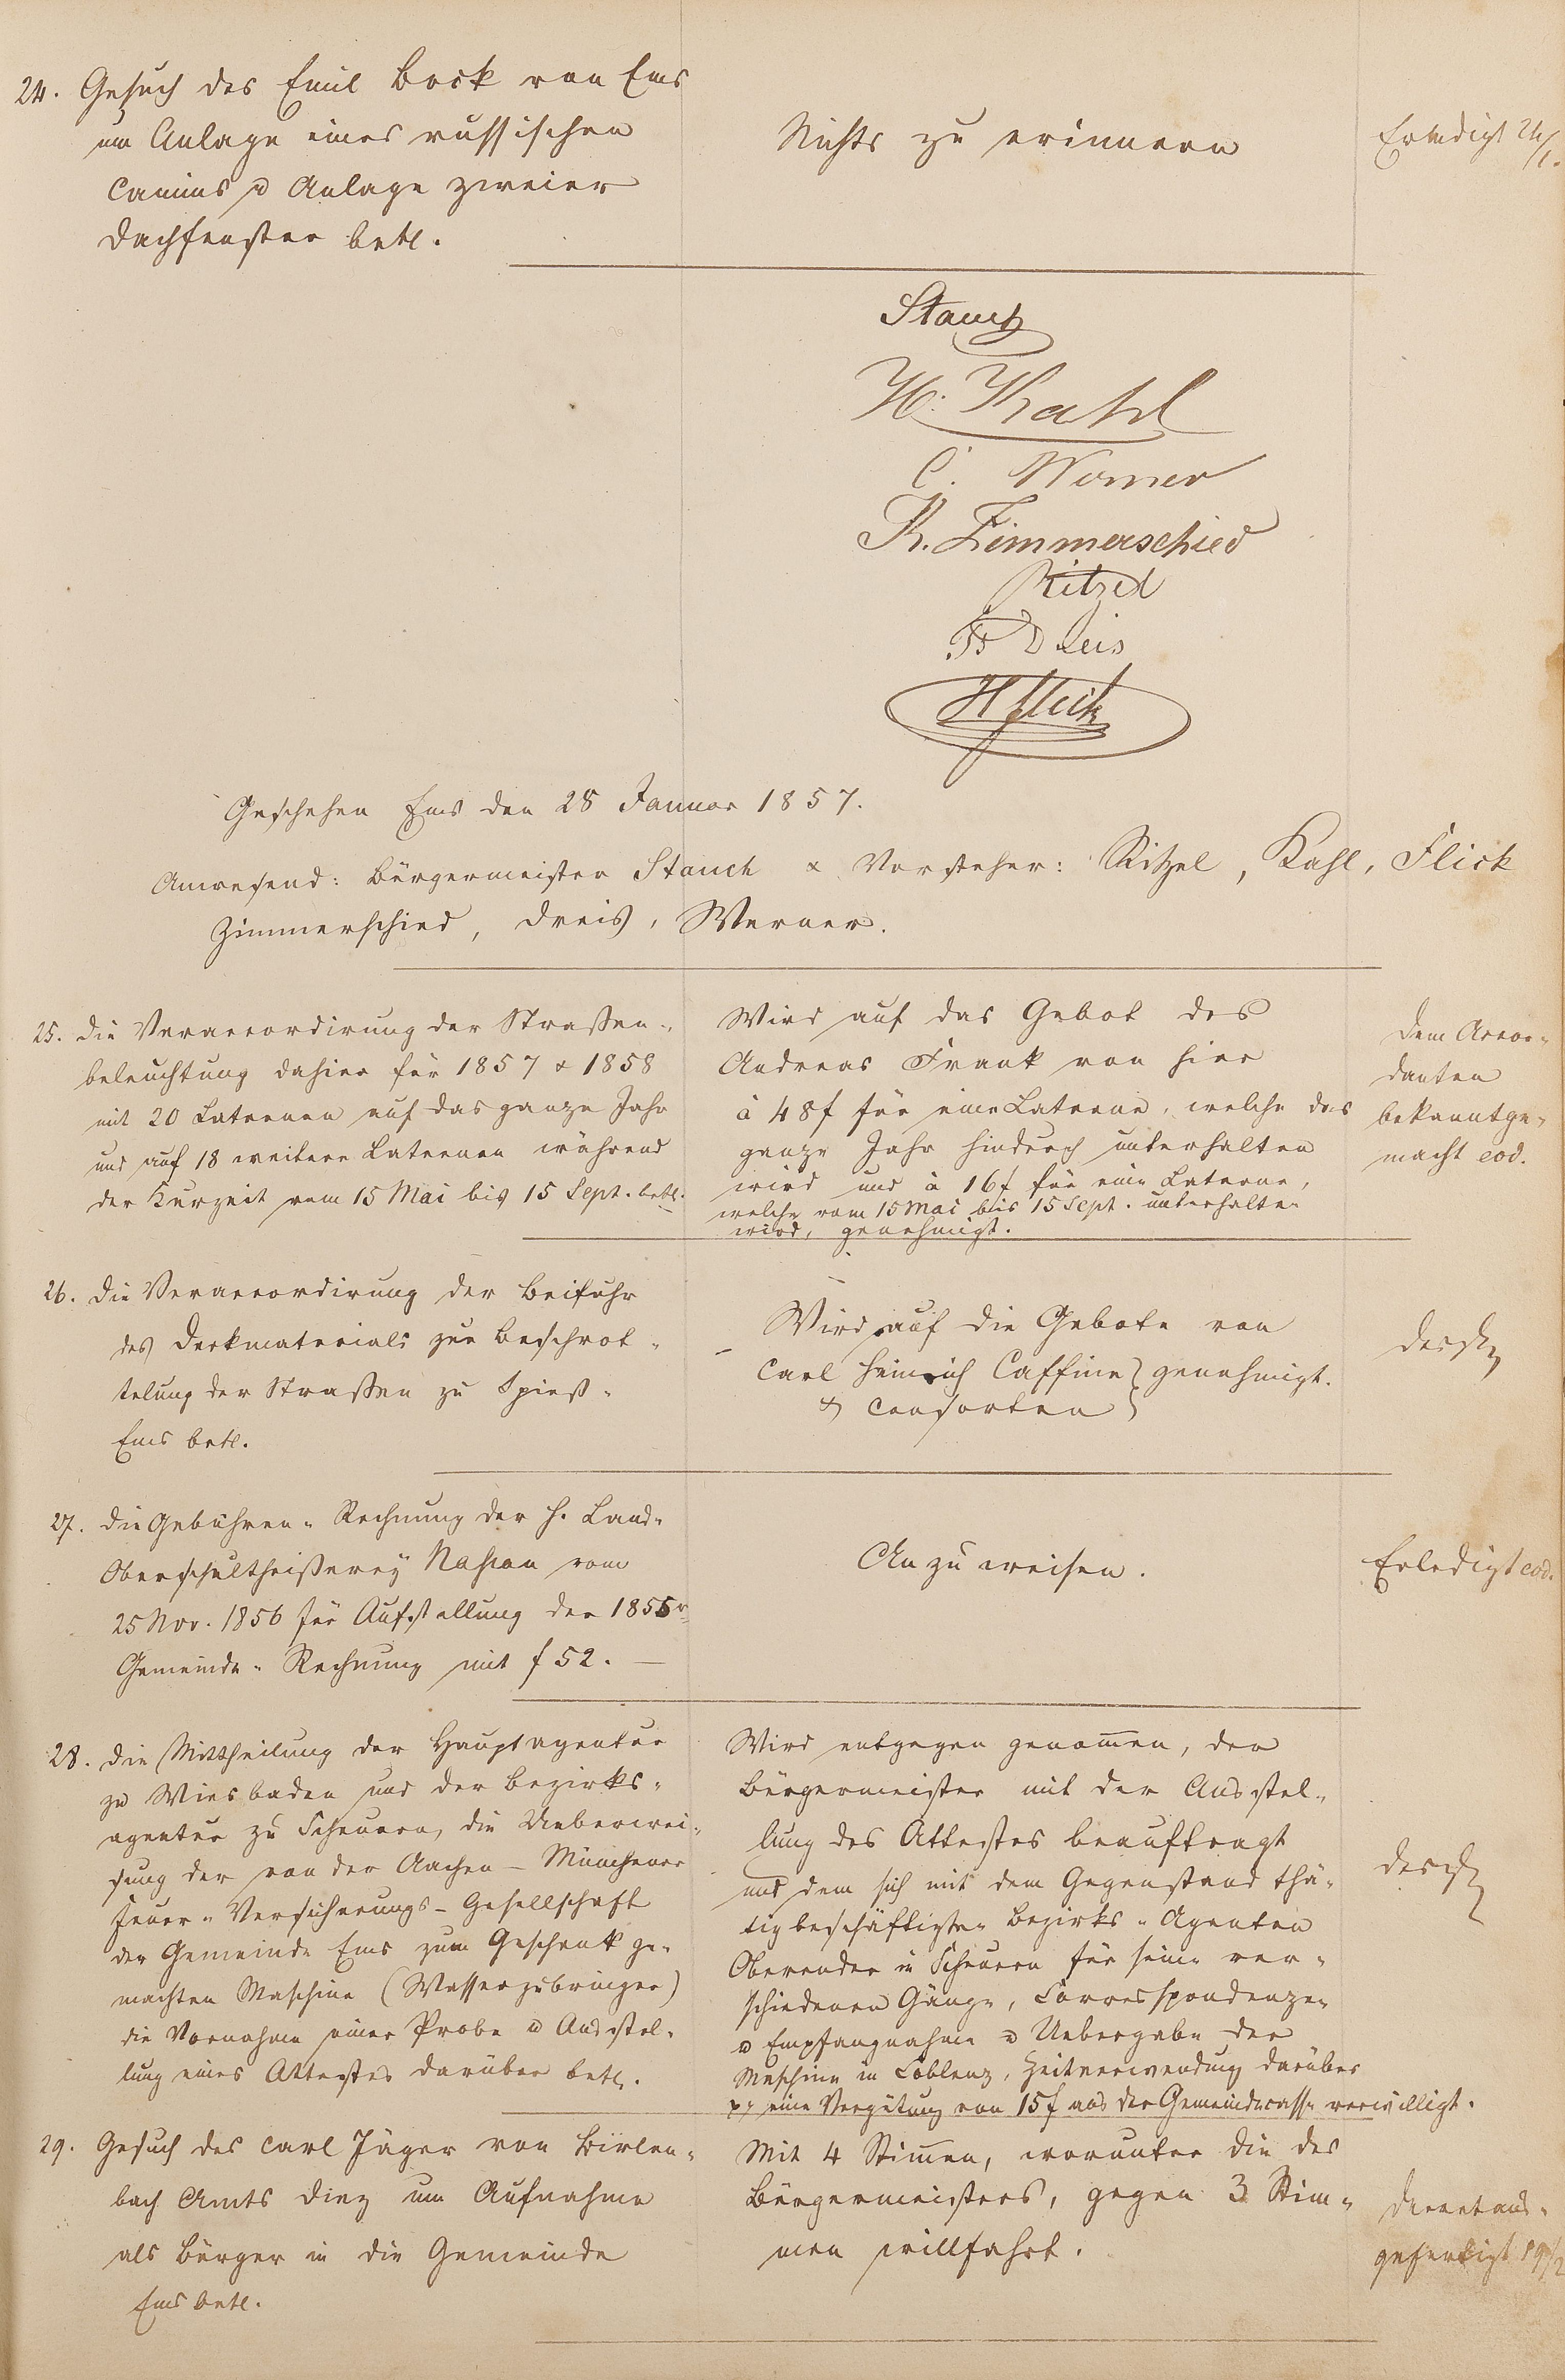 24. Gesuch des Emil Bock von Ems
um Anlage eines russischen
Camins u Anlage zweier
Dachfenster betr.
Nichts zu erinnern
Erledigt 24/1.
Stauch
H. Kahl
C. Werner
K. Zimmerschied
Ritzel
Fr Dreis
H Flick
Geschehen Ems den 28 Januar 1857.
Anwesend: Bürgermeister Stauch & Vorsteher: Ritzel, Kahl, Flick
Zimmerschied, Dreis, Werner.
25. Die Veraccordirung der Straßen-
beleuchtung dahier für 1857 & 1858
mit 20 Laternen auf das ganze Jahr
und auf 18 weitere Laternen während
der Kurzeit vom 15 Mai bis 15 Sept. betr.
Wird auf das Gebot des
Andreas Frank von hier
à 48f für eine Laterne, welche das
ganze Jahr hindurch unterhalten
wird und à 16f für eine Laterne,
welche vom 15 Mai bis 15 Sept. unterhalten
wird, genehmigt.
Dem Accor-
danten
bekanntge-
macht eod.
26. Die Veraccordirung der Beifuhr
des Deckmaterials zur Beschrot-
telung der Straßen zu Spieß-
Ems betr.
Wird auf die Gebote von
Carl Heinrich Caffine } genehmigt.
& Consorten
27. Die Gebühren-Rechnung der H. Land-
Oberschultheißerey Nassau vom
25 Nov. 1856 für Aufstellung der 1855r
Gemeinde-Rechnung mit f 52. —
Anzuweisen.
Erledigt eod.
28. Die Mittheilung der Hauptagentur
zu Wiesbaden und der Bezirks-
agentur zu Scheuern, die Ueberwei-
sung der von der Aachen-Münchener
Feuer-Versicherungs-Gesellschaft
der Gemeinde Ems zum Geschenk ge-
machten Maschine (Wasserzubringer)
die Vornahme einer Probe u Ausstel-
lung eines Attestes darüber betr.
Wird entgegen genommen, der
Bürgermeister mit der Ausstel-
lung des Attestes beauftragt
und dem sich mit dem Gegenstand thä-
tig beschäftigten Bezirks-Agenten
Oberender in Scheuern für seine ver-
schiedenen Gänge, Correspondenzen
u Empfangnahme u Uebergabe der
Maschine in Coblenz, Zeitverwendung darüber
pp eine Vergütung von 15f aus der Gemeindecasse verwilligt.
29. Gesuch des Carl Jäger von Birlen-
bach Amts Diez um Aufnahme
als Bürger in die Gemeinde
Ems betr.
Mit 4 Stimmen, worunter die des
Bürgermeisters, gegen 3 Stim-
men willfahrt.
Decret aus-
gefertigt 19/2